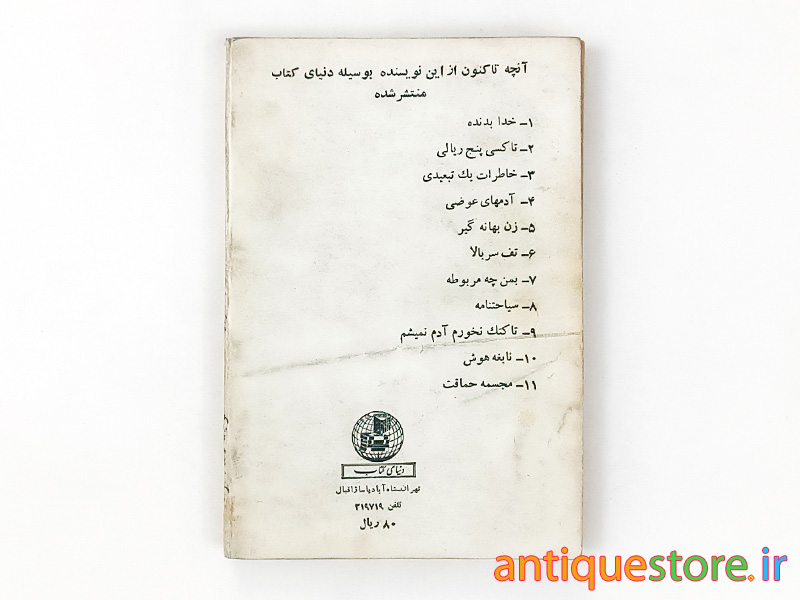 آنچه تاکنون از این نویسنده بوسیله دنیای کتاب
منتشر شده
۱- خدا بدنده
۲- تاکسی پنج ریالی
۳- خاطرات یك تبعیدی
۴- آدمهای عوضی
۵- زن بهانه گیر
۶- تف سر بالا
۷- بمن چه مربوطه
۸- سیاحتنامه
۹- تا کتك نخورم آدم نمیشم
۱۰- نابغه هوش
۱۱- مجسمه حماقت
دنیای کتاب
تهران شاه آباد پاساژ اقبال
تلفن ۳۱۹۷۱۹
۸۰ ریال
antiquestore.ir